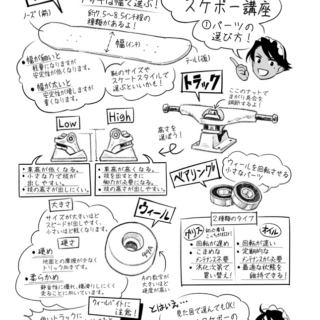 スケボー講座
①パーツの
選び方！
デッキは幅で選ぶ！
約7.5〜8.5インチ程の
種類があるよ！
ノーズ(前)
幅(インチ)
テール(後)
・幅が細いと
軽量になりますが
安定性が低くなります。
・幅が太いと
安定性が増しますが
重くなります。
靴のサイズや
スケートスタイルで
選ぶといいかも！
トラック
ここのナットで
まがり具合を
調節するよ！
Low
High
高さを
選ぼう！
・車高が低くなる。
・小さな力で技が
出しやすい。
・技の高さが出しにくい。
・車高が高くなる。
・技を出すときに
脚力が必要になる。
・技の高さが出しやすい。
ベアリング
ウィールを回転させる
小さなパーツ
ウィール
大きさ
サイズが大きいほど
スピードが出しやすい。
小さいほど軽くなります。
硬さ
・硬め
地面との摩擦が少なく
トリックむきです。
・柔らかめ
静音性に優れ、横滑りしにくく
走ることに向いています。
99A
Aの数字が
大きいほど
硬度が高い
2種類のタイプ
オイル
・回転が速め
・こまめな
メンテナンス必要
・消化次第で
買い替え！
・回転が遅い
・定期的な
メンテナンス不要
・最適な状態を
維持できる！
ウィールバイトに
注意！
とはいえ…
見た目で選んでもOK！